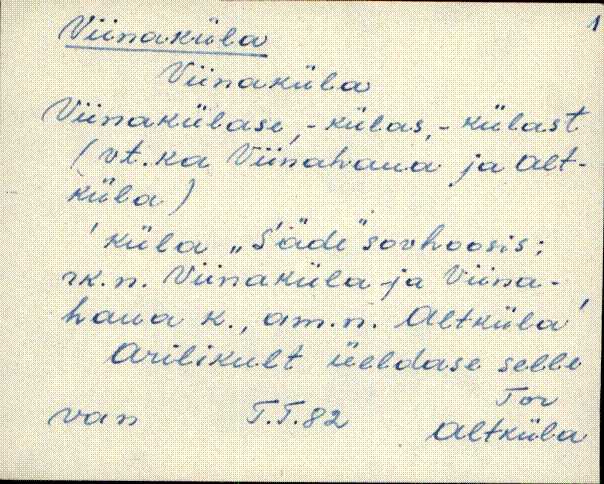 1
Viinaküla
Viinaküla
Viinakülase, -külas, -külast
(vt. ka Viinahaua ja Alt-
küla)
'küla „Säde" sovhoosis;
rk. n. Viinaküla ja Viina-
haua k., am. n. Altküla'
Arilikult üeldase selle
Tor
van T.T. 82 Altküla